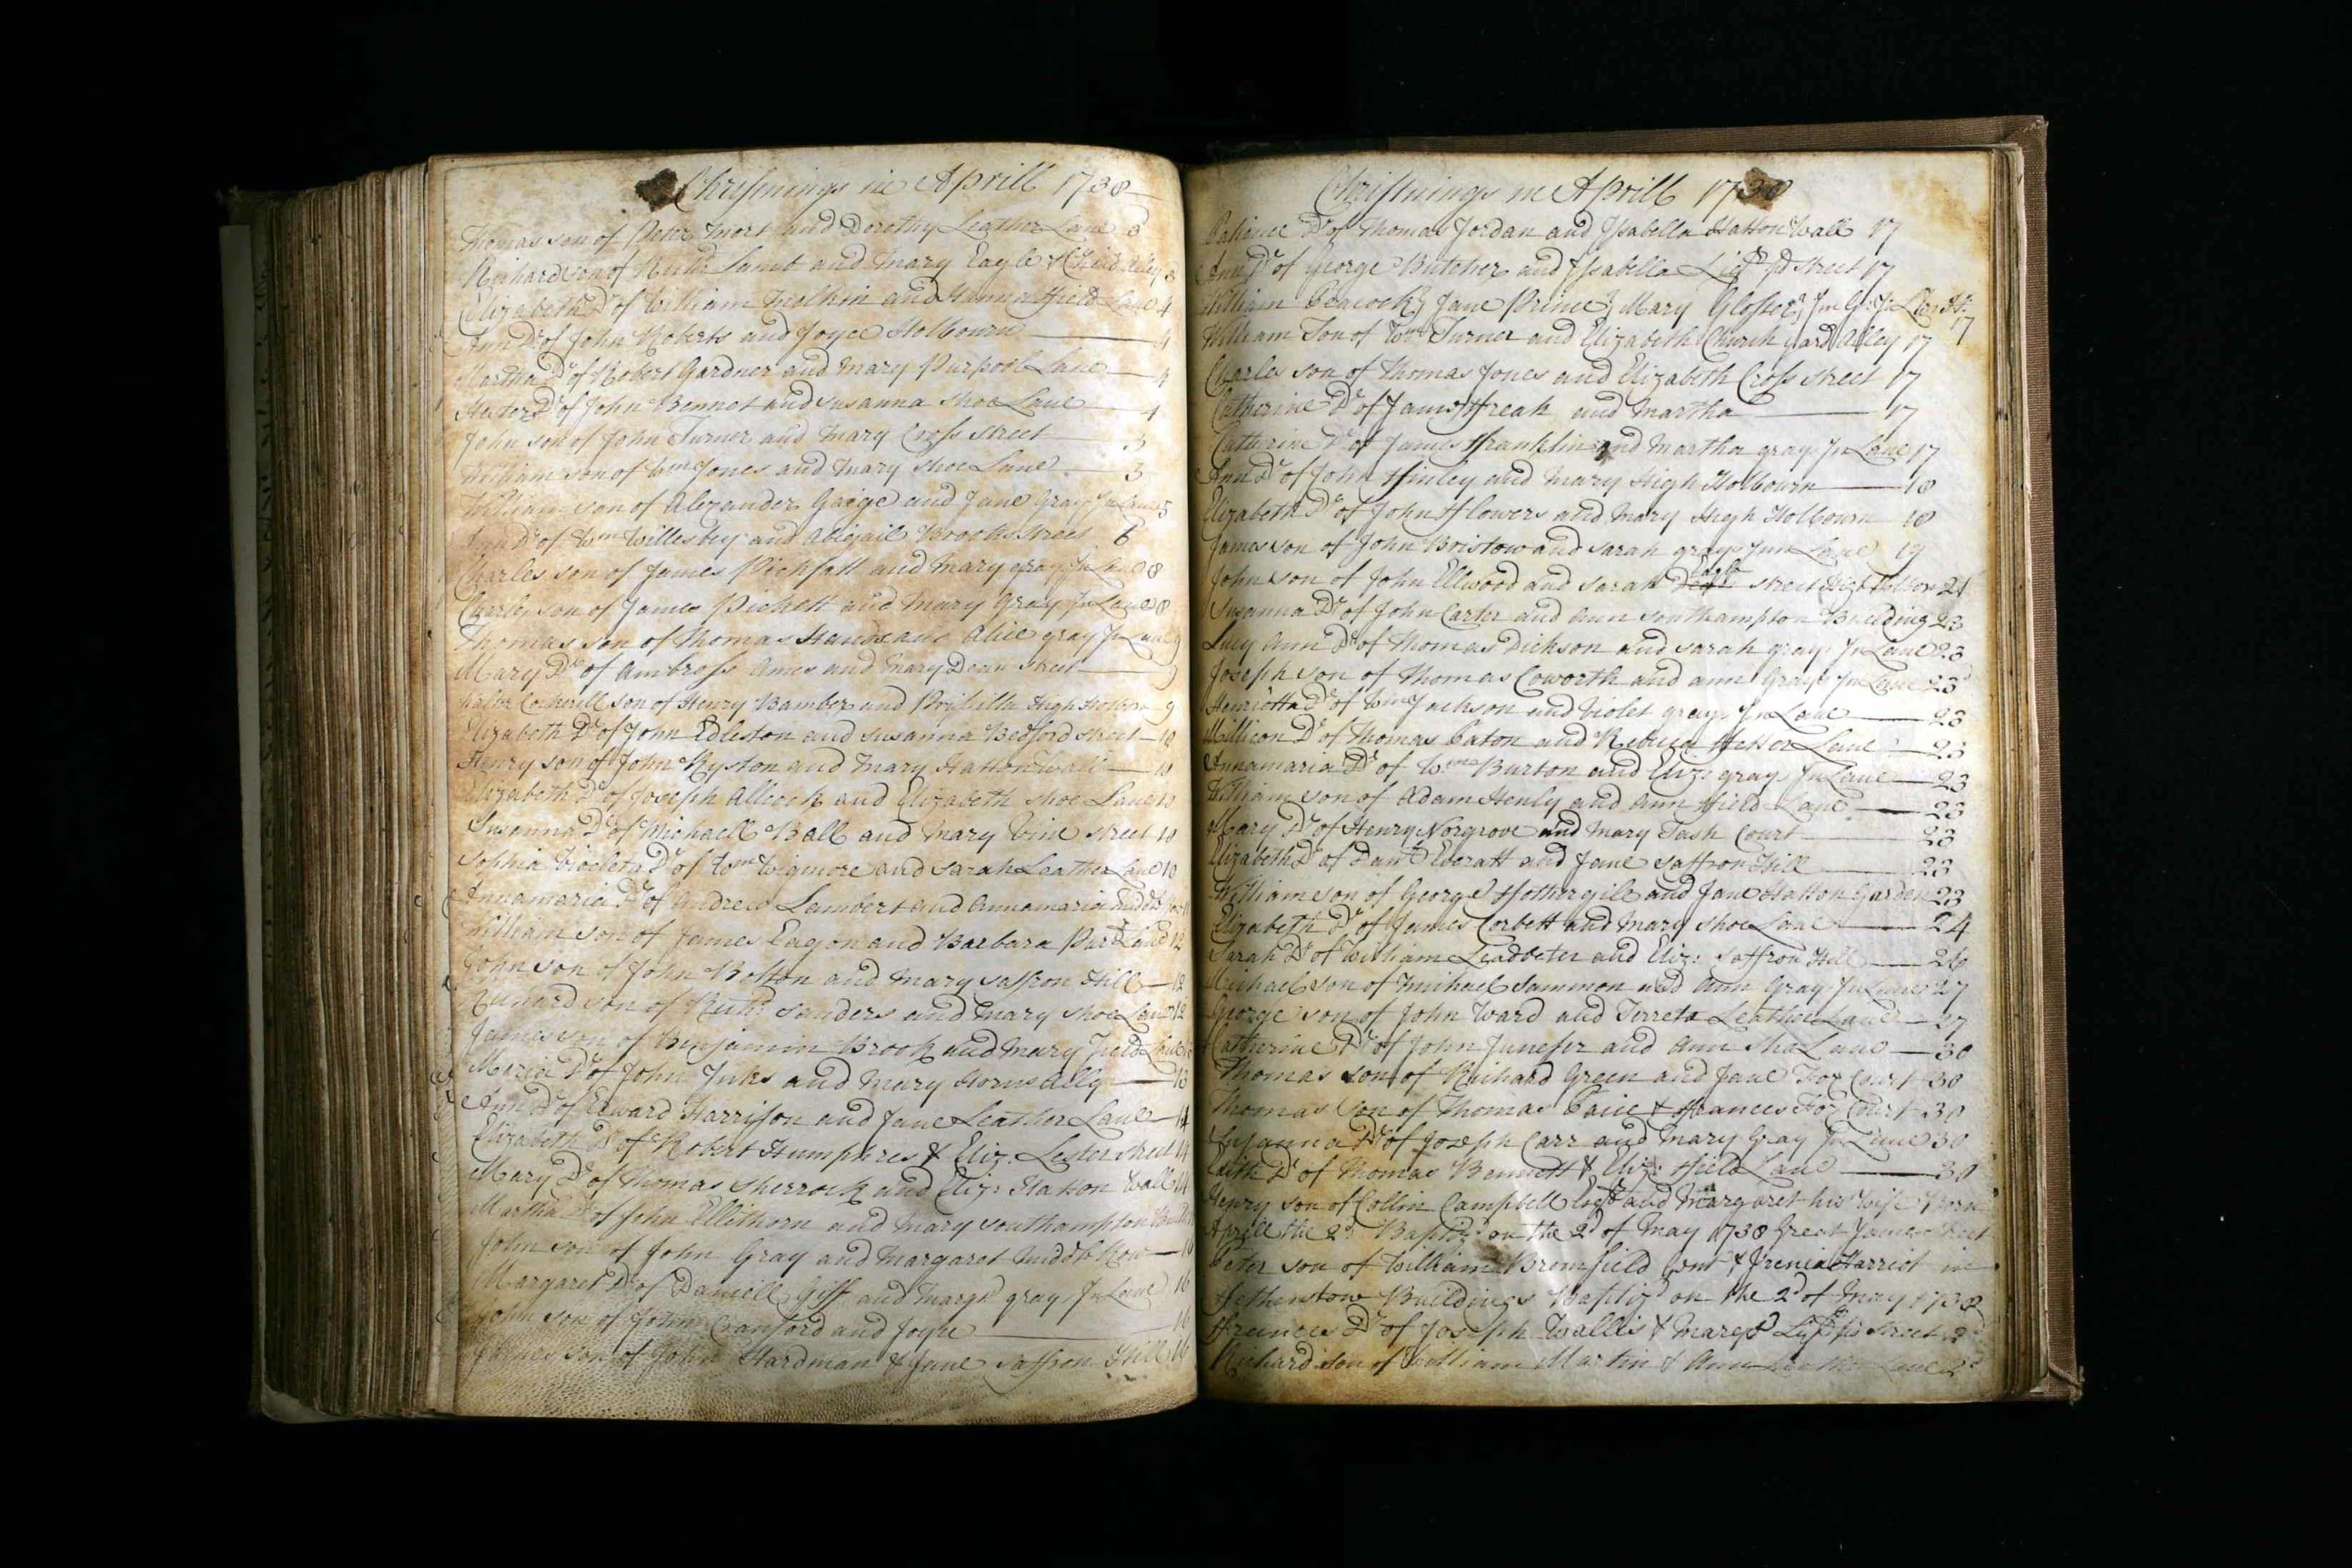 Chrisnings in Aprill 1738
Thomas son of Peter Mort and Dorothy Leather Lane 3
Richard son of Richd Lamb and Mary Eagle & Child Alley 3
Elizabeth Dr of William and Hanna ffield Lane 4
Ann Dr of John Roberts and Joyce Holbourn 4
Martha Dr of Robert Gardner and Mary Purpool Lane 4
Hester Dr of John Bennet and Susanna Shoe Lane 4
John son of John Turner and Mary Cross street 3
William son of Wm Jones and Mary Shoe Lane 3
William son of Alexander Gaige and Jane Grays Jn Lane 5
Ann Dr of Wm Willesbey and Abigail Brooks Street 6
Charles son of James Pickfatt and Mary gray Jn Lane 8
Charles son of James Pickett and Mary Gray Jn Lane 8
Thomas son of Thomas and Alice gray Jn Lane 9
Mary Dr of Ambross Ames and Mary Dean Street 9
son of Henry Bamber and Prissilla High Holborn 9
Elizabeth Dr of John Edleston and Susanna Bedford street 10
Henry son of John Ryston and Mary Hatton Wall 10
Elizabeth Dr of Joseph Allcock and Elizabeth Shoe Lane 10
Susanna Dr of Michaell Ball and Mary Vine street 10
Sophia Violeta Dr of Wm Wigmore and Sarah Leather Lane 10
Annamaria Dr of Andrew Lambert and Annamaria Middle Row 11
William son of James Eagon and Barbara Purp Lane 12
John son of John Bolton and Mary Saffron Hill 12
Richard son of Richd Sanders and Mary Shoe Lane 12
James son of Benjamin Brook and Mary Field Lane
Maria Dr of John Juks and Mary Horns Ally 13
Ann Dr of Edward Harrisson and Jane Leather Lane 14
Elizabeth Dr of Robert Humphres & Eliz: Lester Street 14
Mary Dr of Thomas Sherrock and Eliz: Hatton Wall 14
Martha Dr of John Ellithorn and Mary Southampton
John son of John Gray and Margaret Middle Row 16
Margaret Dr of Daniell Giff and Margt gray Jn Lane 16
John son of John Cranford and Joyce 16
James son of John Hardman & Jane Saffron Hill 16
Chrisnings in Aprill 1738
Patience Dr of Thomas Jordan and Jsabella Hatton Wall 17
Ann Dr of George Butcher and Jsabella street 17
William Peacock; Jane Prince; Mary Gloster; 17
William Son of Wm Turner and Elizabeth Church yard Alley 17
Charles son of Thomas Jones and Elizabeth Cross street 17
Catherine Dr of James ffreak and Martha 17
Catherine Dr of James ffranklin and Martha grays Jn Lane 17
Ann Dr of John ffinley and Mary High Holbourn 18
Elizabeth Dr of John fflowers and Mary High Holbourn 18
James son of John Bristow and Sarah grays Jnn Lane 19
John son of John Ellwood and Sarah Eagle street High Holbon 21
Susanna Dr of John Carter and Ann Southampton Buelding 23
Lucy Ann Dr of Thomas Dickson and Sarah grays Jn Lane 23
Joseph son of Thomas Coworth and ann Grays Jn Lane 23
Henriotta Dr of Wm Jackson and Violet grays Jn Lane 23
Millicon Dr of Thomas Caton and Rebecca ffetter Lane 23
Annamaria Dr of Wm Burton and Eliz: grays Jn Lane 23
William son of Adam Henly and Ann ffield Lane 23
Mary Dr of Henry Norgrove and Mary Tash Court 23
Elizabeth Dr of Danll Everatt and Jane Saffron Hill 23
William son of George ffothergile and Jane Hatton Garden 23
Elizabeth Dr of James Corbett and Mary Shoe Lane 24
Sarah Dr of William Leadbeter and Eliz: Saffron Hill 26
Michael son of Michael Sammon and Ann Gray Jn Lane 27
George son of John Ward and Terreta Leather Lane 27
Catherine Dr of John Junefer and Ann Sho Lane 30
Thomas son of Richard Green and Jane Fox Court 30
Thomas son of Thomas & ffrances Fox Court 30
Susanna Dr of Joseph Carr and Mary Gray Jn Lane 30
Edith Dr of Thomas Bennett & Eliz: ffield Lane 30
Henry son of Collin Campbell Esqr and Margaret his Wife Born
Aprill the 2d Baptiz'd on the 2d of May 1738 Great James Street
Peter son of William Bromfield & Jrenia Harriot in
Buildings Baptiz'd on the 2d of May 1738
ffrances Dr of Joseph Wallis & Margt street 2d
Richard son of William Martin & Ann Leather Lane 2d